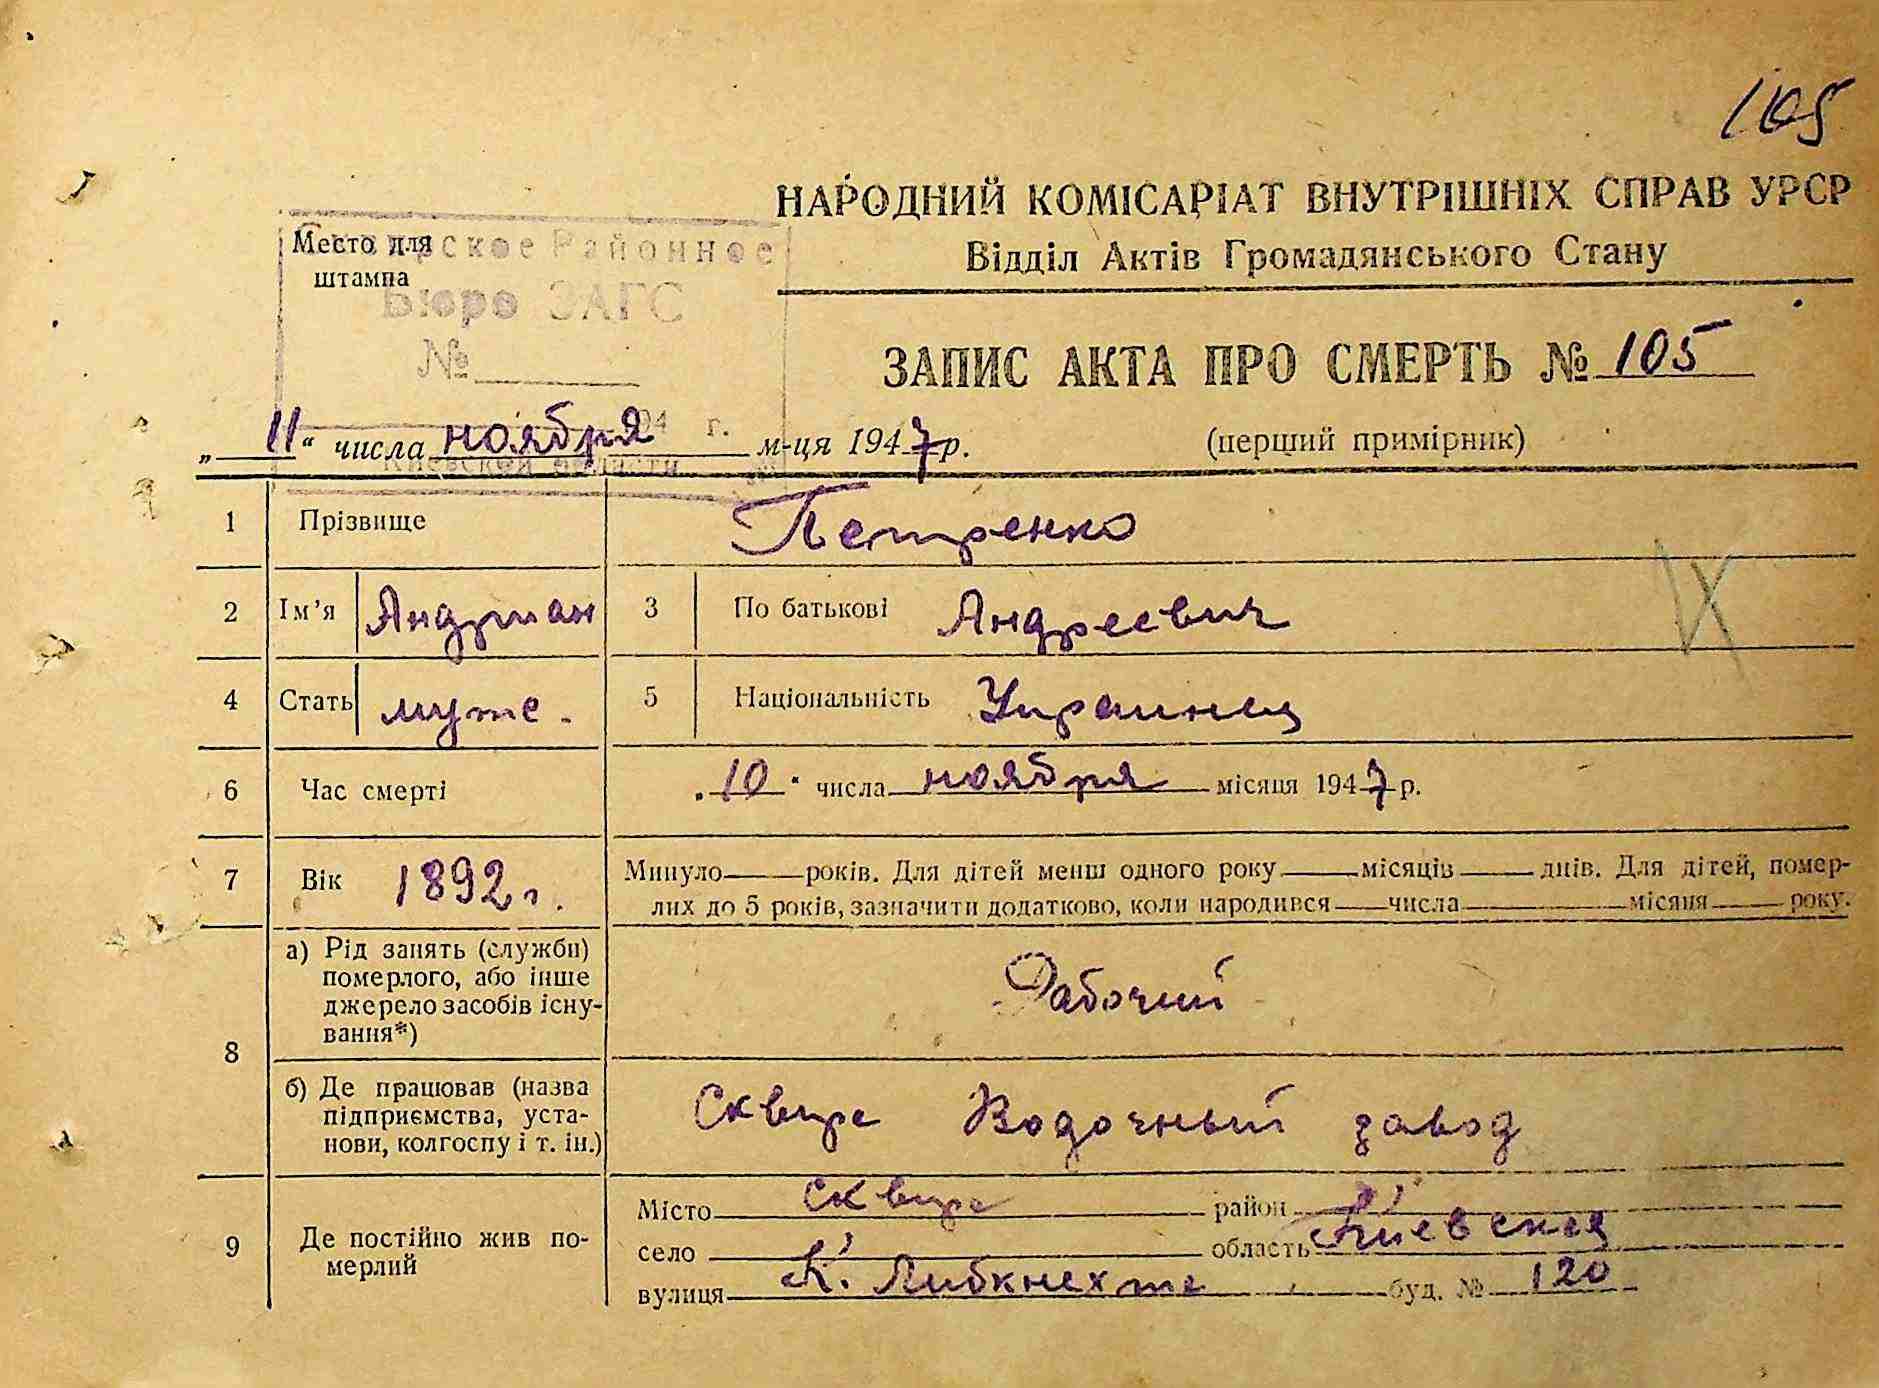 105
НАРОДНИЙ КОМІСАРІАТ ВНУТРІШНІХ СПРАВ УРСР
Відділ Актів Громадянського Стану
Место для
штампа
Сквирское Районное
Бюро ЗАГС
№
194 г.
Киевской области
ЗАПИС АКТА ПРО СМЕРТЬ № 105
„ 11 “ числа ноября м-ця 1947 р.
(перший примірник)
1 Прізвище Петренко
2 Ім’я Андриан 3 По батькові Андреевич
4 Стать муже. 5 Національність Украинец
6 Час смерті „ 10 “ числа ноября місяця 1947 р.
7 Вік 1892 г. Минуло років. Для дітей менш одного року місяців днів. Для дітей, помер-
лих до 5 років, зазначити додатково, коли народився числа місяця року.
8 а) Рід занять (служби)
померлого, або інше
джерело засобів існу-
вання*)
Рабочий
б) Де працював (назва
підприємства, уста-
нови, колгоспу і т. ін.)
Сквира Водочный завод
9 Де постійно жив по-
мерлий
Місто Сквира район
село область Киевская
вулиця К. Либкнехта буд. № 120